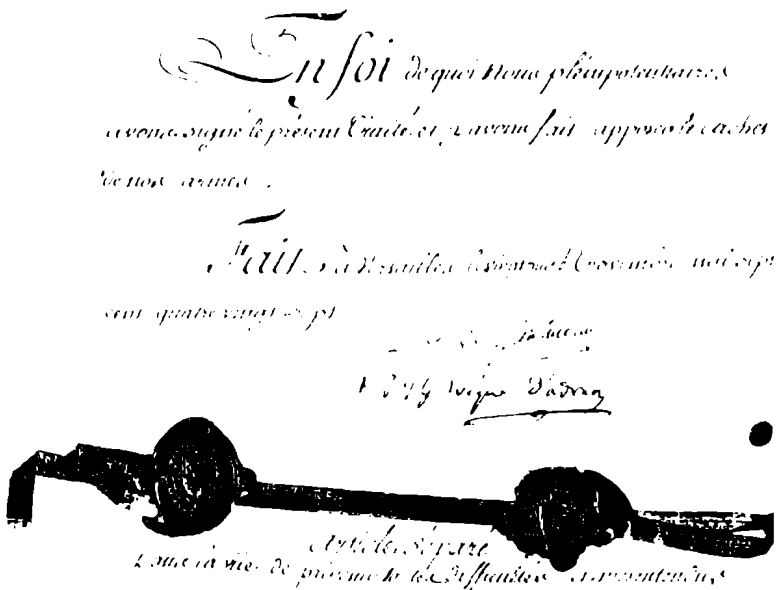 En foi de quoi Nous plénipotentiaires
avons signé le présent Traité et y avons fait apposer le cachet
de nos armes.
Fait à Versailles le vingt novembre mil sept
cent quatre vingt sept
évêque D'adran
Article séparé
Dans la vue de prévenir les difficultés